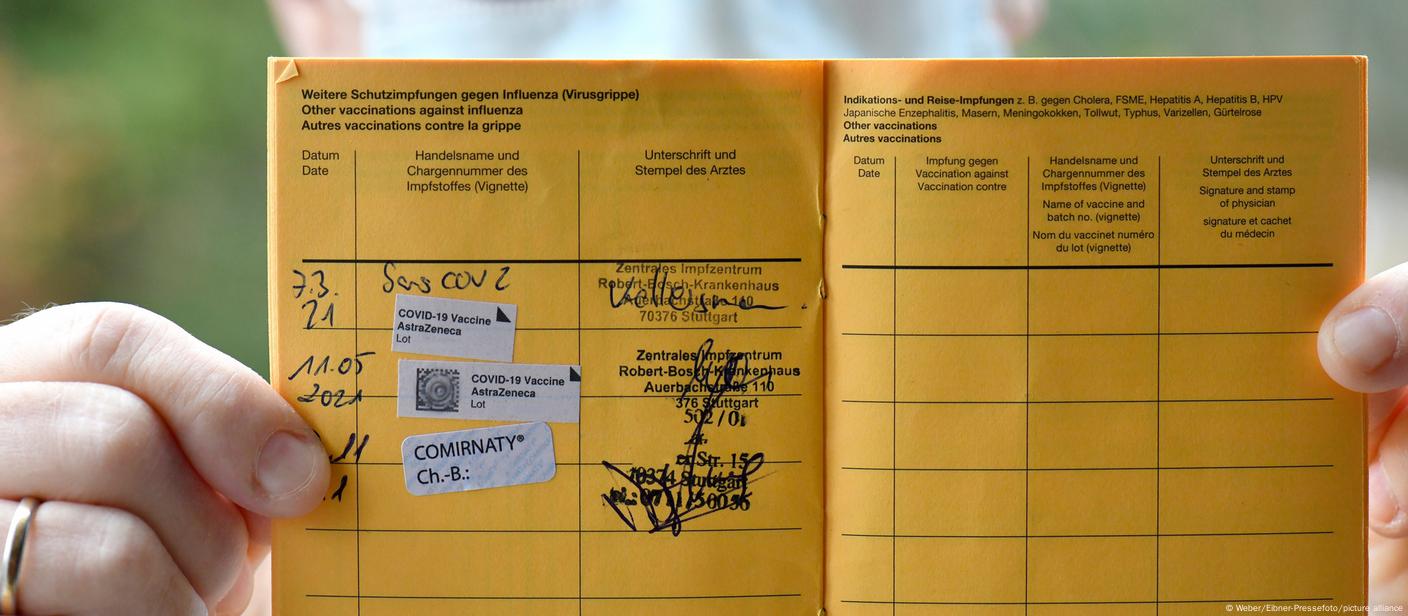 Weitere Schutzimpfungen gegen Influenza (Virusgrippe)
Other vaccinations against influenza
Autres vaccinations contre la grippe
Datum
Date
Handelsname und
Chargennummer des
Impfstoffes (Vignette)
Unterschrift und
Stempel des Arztes
7.3.
21
Sars COV 2
COVID-19 Vaccine
AstraZeneca
Lot
Zentrales Impfzentrum
Robert-Bosch-Krankenhaus
Auerbachstraße 110
70376 Stuttgart
11.05
2021
COVID-19 Vaccine
AstraZeneca
Lot
Zentrales Impfzentrum
Robert-Bosch-Krankenhaus
Auerbachstraße 110
376 Stuttgart
.11
.1
COMIRNATY®
Ch.-B.:
502/0
er Str. 15
Stuttgart
Indikations- und Reise-Impfungen z. B. gegen Cholera, FSME, Hepatitis A, Hepatitis B, HPV
Japanische Enzephalitis, Masern, Meningokokken, Tollwut, Typhus, Varizellen, Gürtelrose
Other vaccinations
Autres vaccinations
Datum
Date
Impfung gegen
Vaccination against
Vaccination contre
Handelsname und
Chargennummer des
Impfstoffes (Vignette)
Name of vaccine and
batch no. (vignette)
Nom du vaccinet numéro
du lot (vignette)
Unterschrift und
Stempel des Arztes
Signature and stamp
of physician
signature et cachet
du médecin
© Weber/Eibner-Pressefoto/picture alliance